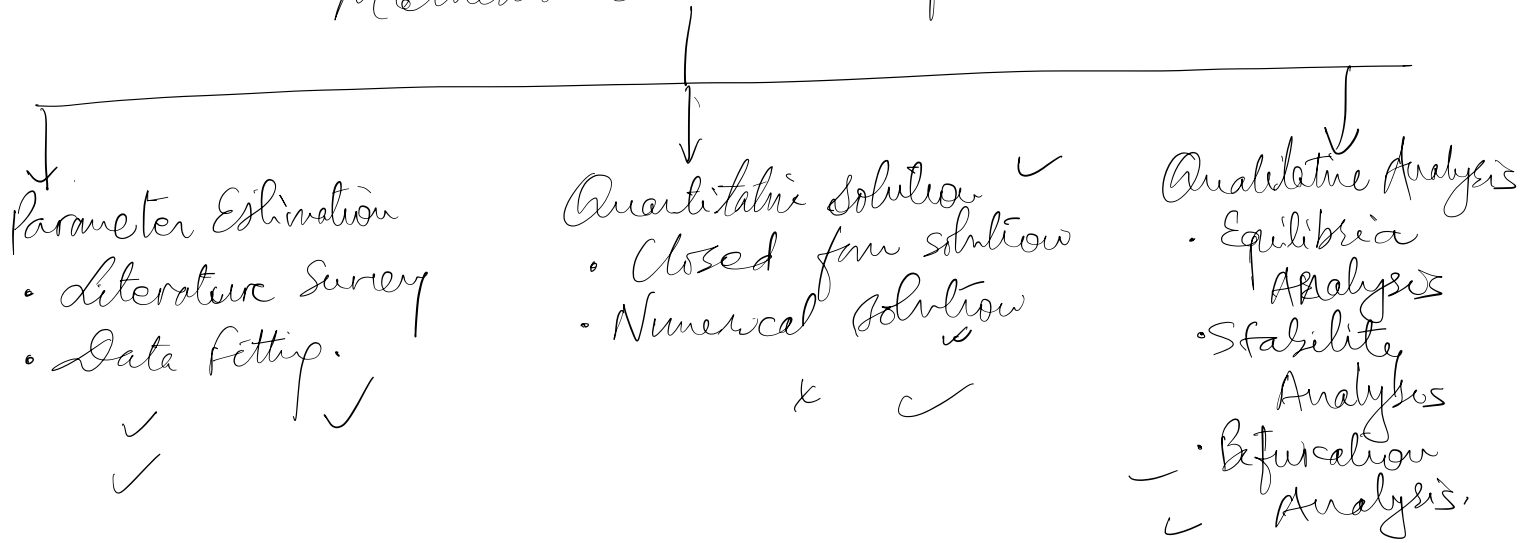 Parameter Estimation
• Literature Survey
• Data fitting.
Quantitative solution
• Closed form solution
• Numerical solution
Qualitative Analysis
• Equilibria
Analysis
• Stability
Analysis
• Bifurcation
Analysis.